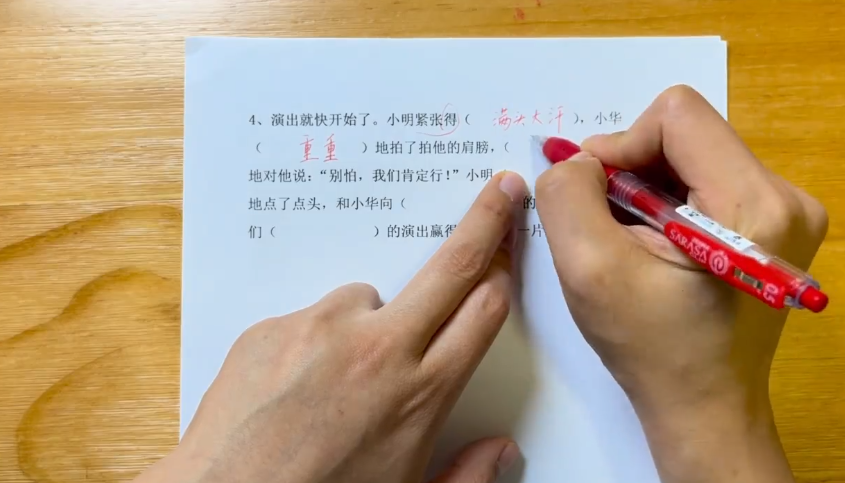 4、演出就快开始了。小明紧张得（ 满头大汗 ），小华
（ 重重 ）地拍了拍他的肩膀，（
地对他说：“别怕，我们肯定行！”小明
地点了点头，和小华向（ 的
们（ ）的演出赢得 一片
SARASA
0.5